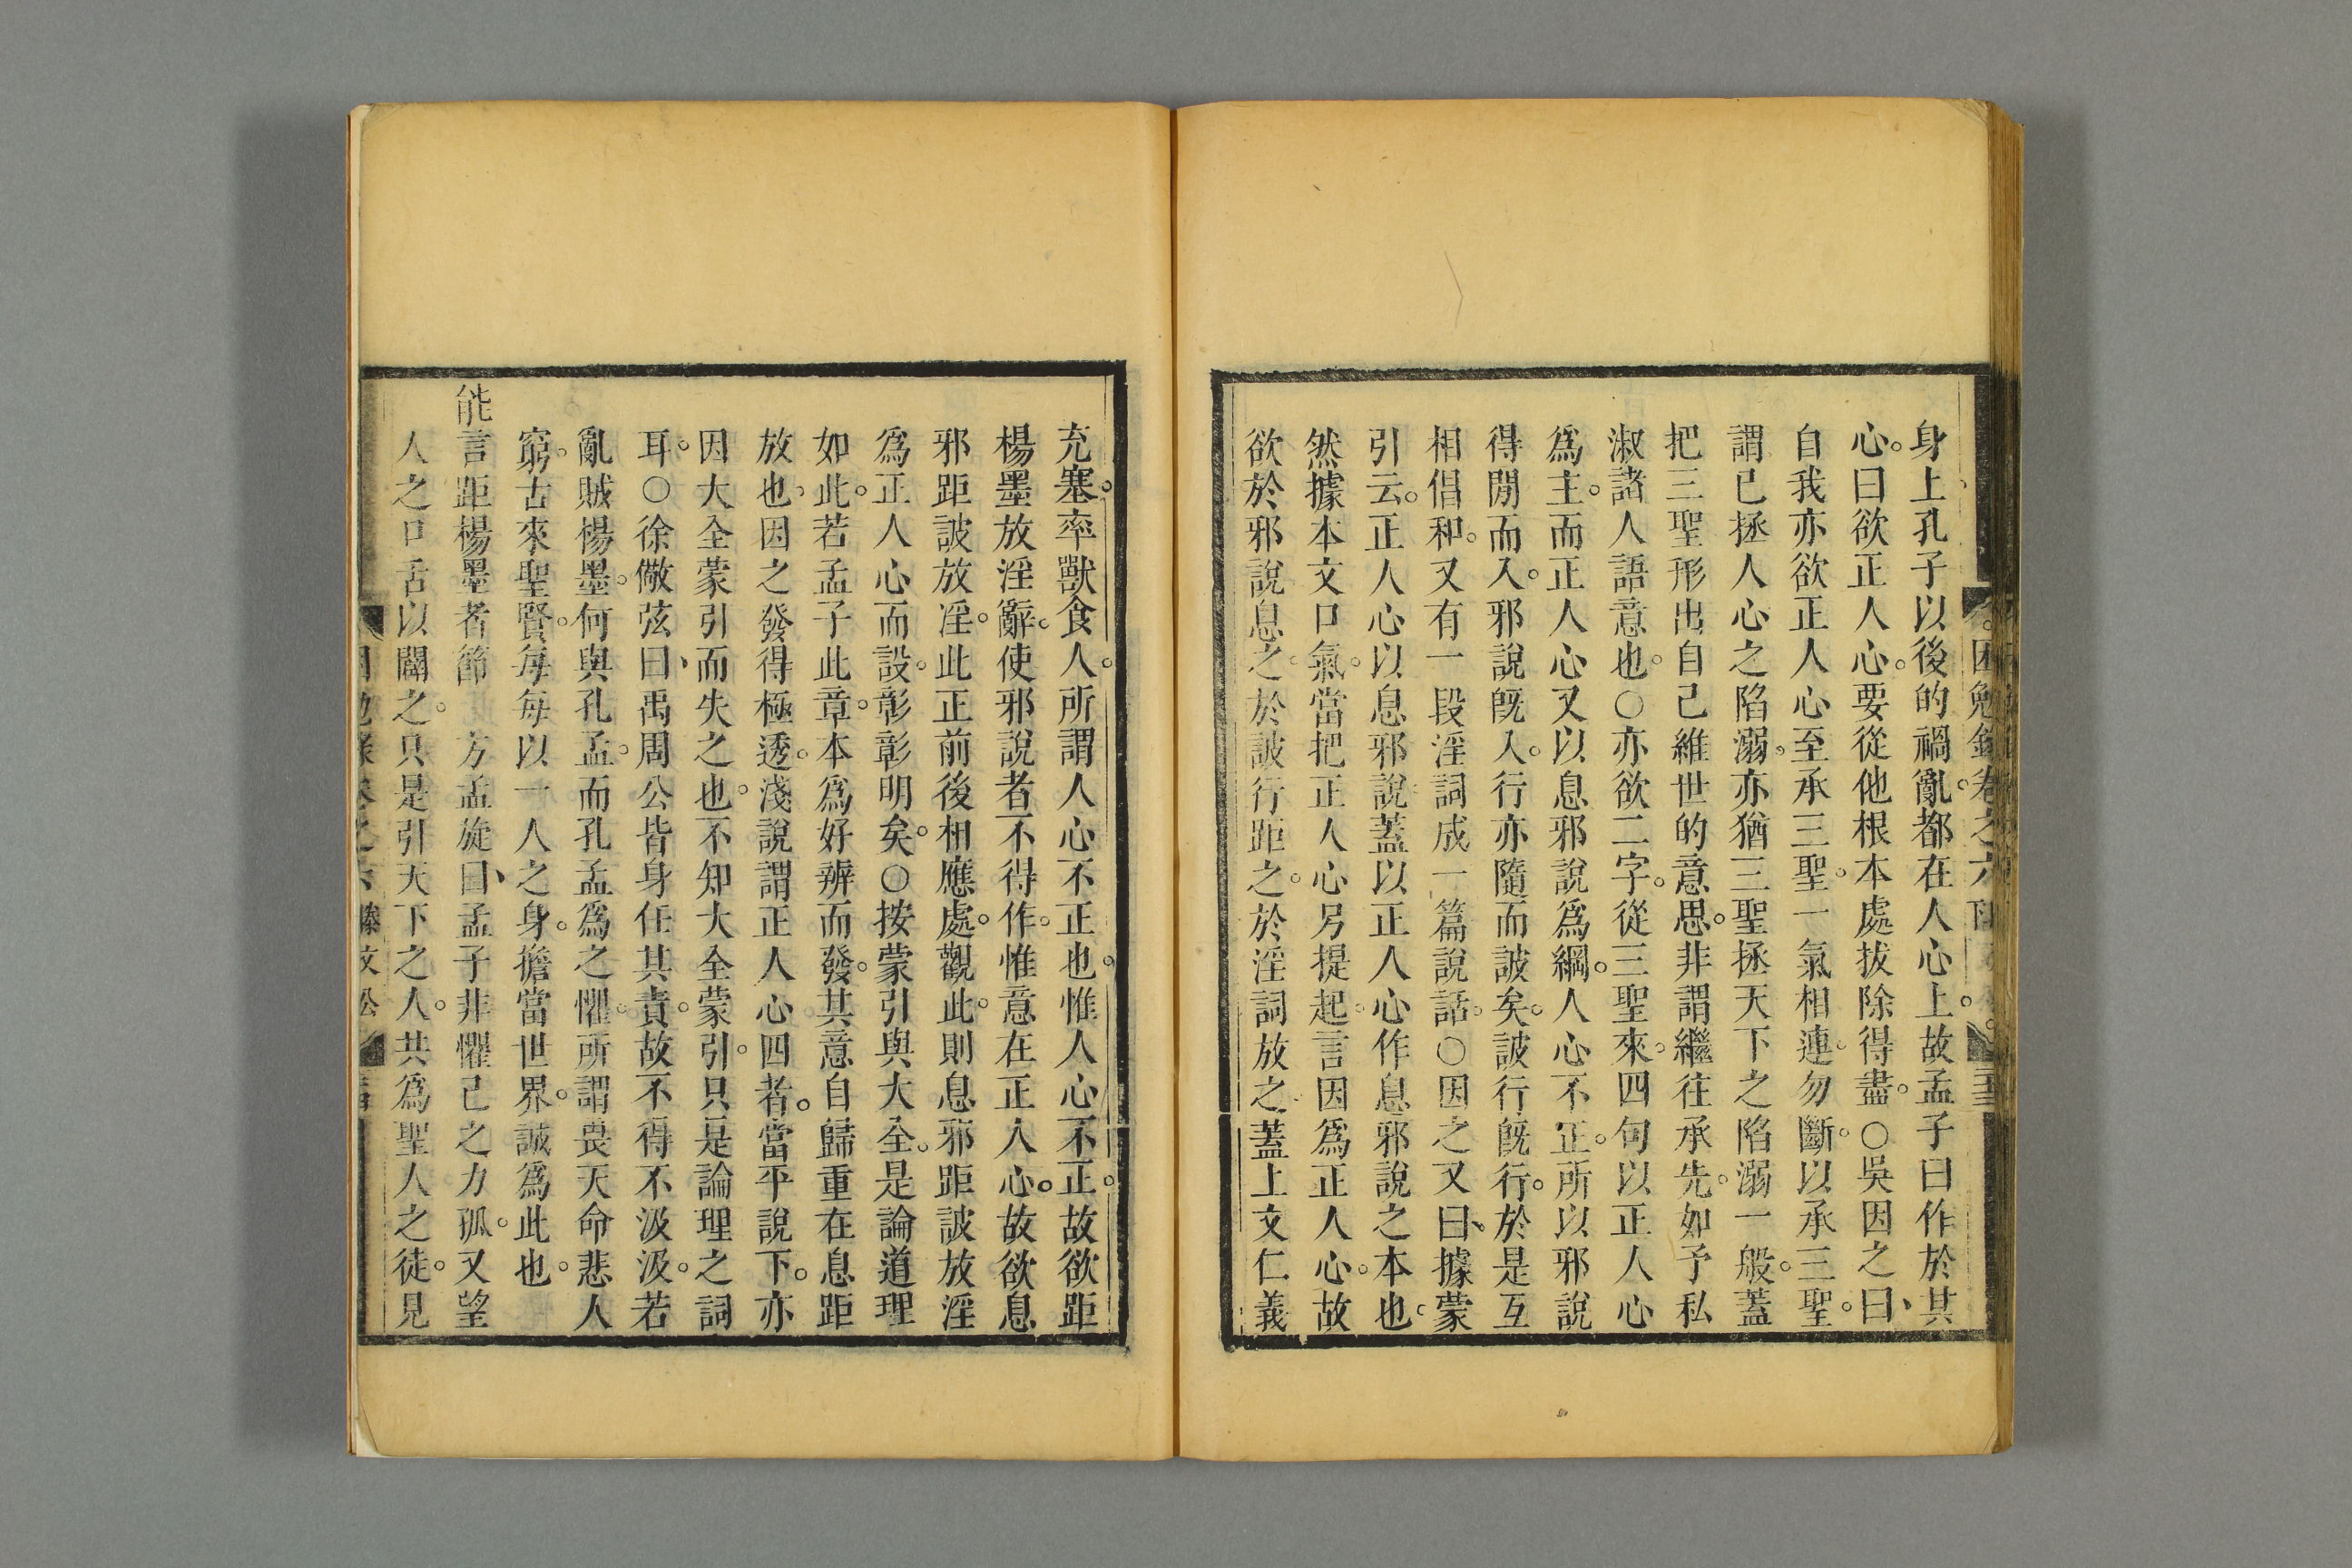 身上孔子以後的禍亂都在人心上故孟子曰作於其
心曰欲正人心要從他根本處拔除得盡○吳因之曰
自我亦欲正人心至承三聖一氣相連勿斷以承三聖
謂已拯人心之陷溺亦猶三聖拯天下之陷溺一般蓋
把三聖形出自己維世的意思非謂繼往承先如予私
淑諸人語意也○亦欲二字從三聖來四句以正人心
爲主而正人心又以息邪說爲綱人心不正所以邪說
得閒而入邪說旣入行亦隨而詖矣詖行旣行於是互
相倡和又有一段淫詞成一篇說話○因之又曰據蒙
引云正人心以息邪說蓋以正人心作息邪說之本也
然據本文口氣當把正人心另提起言因爲正人心故
欲於邪說息之於詖行距之於淫詞放之蓋上文仁義
充塞率獸食人所謂人心不正也惟人心不正故欲距
楊墨放淫辭使邪說者不得作惟意在正人心故欲息
邪距詖放淫此正前後相應處觀此則息邪距詖放淫
爲正人心而設彰彰明矣○按蒙引與大全是論道理
如此若孟子此章本爲好辨而發其意自歸重在息距
放也因之發得極透淺說謂正人心四者當平說下亦
因大全蒙引而失之也不知大全蒙引只是論理之詞
耳○徐儆弦曰禹周公皆身任其責故不得不汲汲若
亂賊楊墨何與孔孟而孔孟爲之懼所謂畏天命悲人
窮古來聖賢每每以一人之身擔當世界誠爲此也
能言距楊墨者節 方孟旋曰孟子非懼己之力孤又望
人之口舌以闢之只是引天下之人共爲聖人之徒見